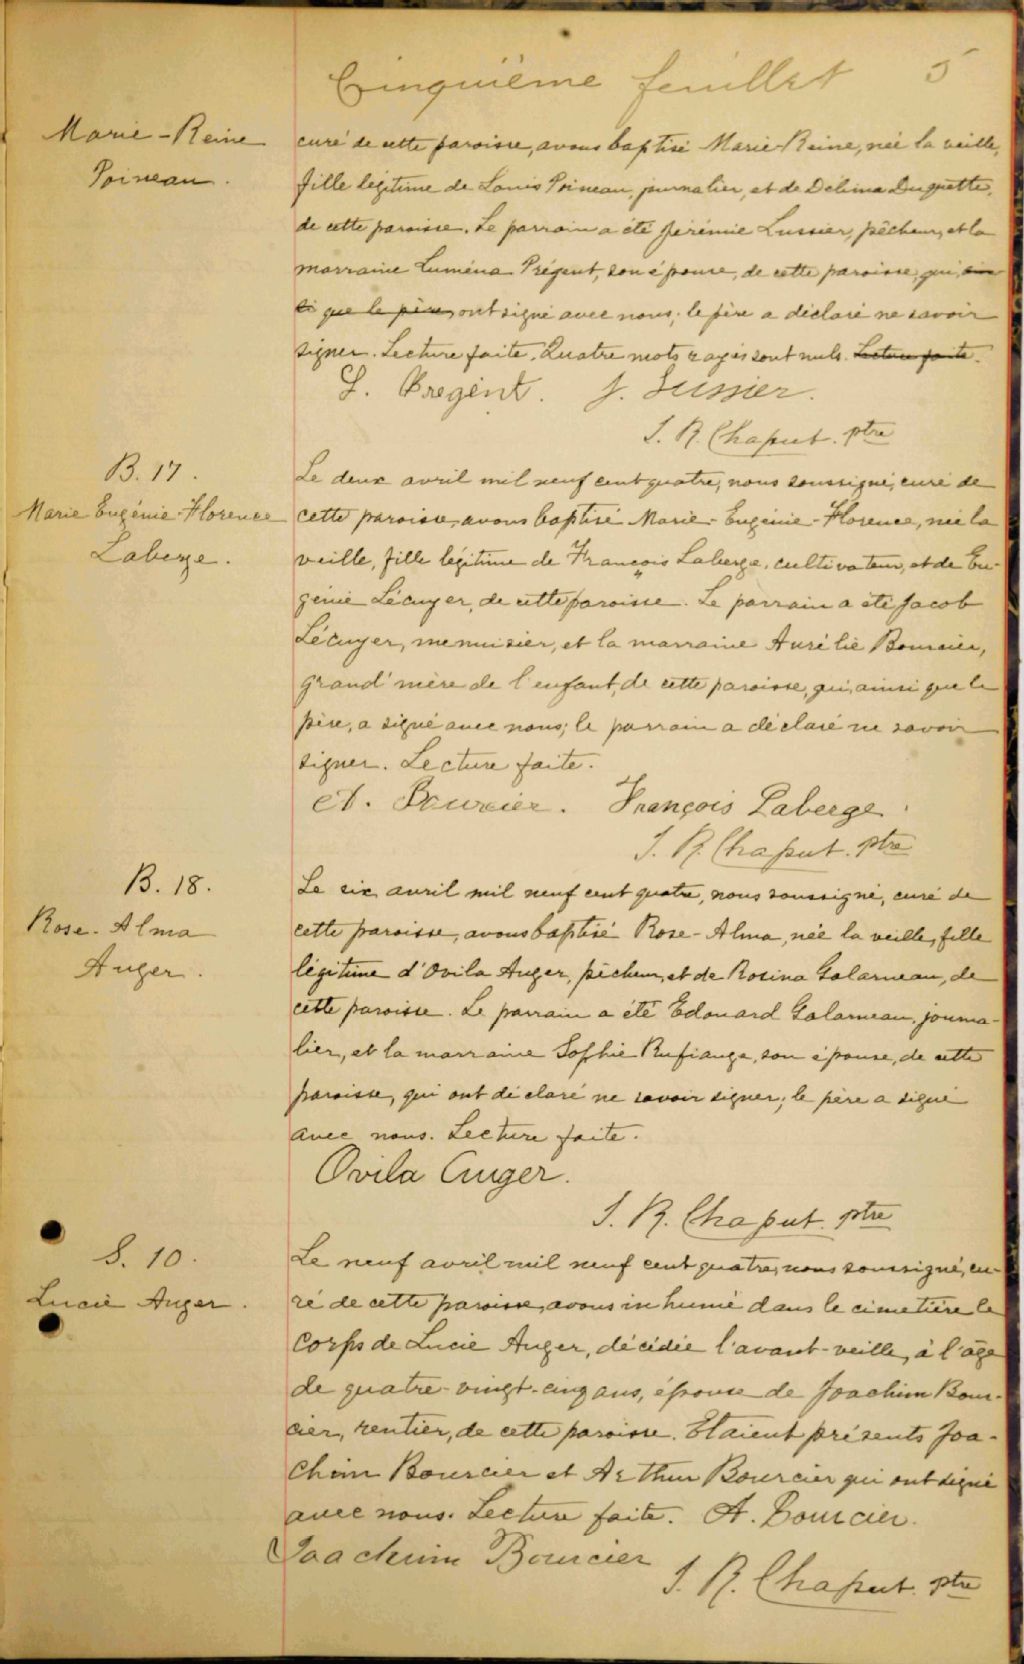 Cinquième feuillet 5
Marie-Reine
Poineau.
curé de cette paroisse, avons baptisé Marie-Reine, née la veille,
fille légitime de Louis Poineau, journalier, et de Délima Duquette,
de cette paroisse. Le parrain a été Jérémie Lussier, pêcheur, et la
marraine Luména Prégent, son épouse, de cette paroisse, qui, ain
si que le père, ont signé avec nous; le père a déclaré ne savoir
signer. Lecture faite. Quatre mots rayés sont nuls. Lecture faite.
L. Pregent. J. Lussier.
J. R. Chaput. ptre
B. 17.
Marie Eugénie-Florence
Laberge.
Le deux avril mil neuf cent quatre, nous soussigné, curé de
cette paroisse, avons baptisé Marie-Eugénie-Florence, née la
veille, fille légitime de François Laberge, cultivateur, et de Eu-
génie Lécuyer, de cette paroisse. Le parrain a été Jacob
Lécuyer, menuisier, et la marraine Aurélie Bourcier,
grand'mère de l'enfant, de cette paroisse, qui, ainsi que le
père, a signé avec nous; le parrain a déclaré ne savoir
signer. Lecture faite.
A. Bourcier. François Laberge
J. R. Chaput. ptre
B. 18.
Rose-Alma
Auger.
Le six avril mil neuf cent quatre, nous soussigné, curé de
cette paroisse, avons baptisé Rose-Alma, née la veille, fille
légitime d'Ovila Auger, pêcheur, et de Rosina Galarneau, de
cette paroisse. Le parrain a été Edouard Galarneau, journa-
lier, et la marraine Sophie Rufiange, son épouse, de cette
paroisse, qui ont déclaré ne savoir signer; le père a signé
avec nous. Lecture faite.
Ovila Auger.
J. R. Chaput. ptre
S. 10.
Lucie Auger.
Le neuf avril mil neuf cent quatre, nous soussigné, cu-
ré de cette paroisse, avons inhumé dans le cimetière le
corps de Lucie Auger, décédée l'avant-veille, à l'âge
de quatre-vingt-cinq ans, épouse de Joachim Bour-
cier, rentier, de cette paroisse. Etaient présents Joa-
chim Bourcier et Arthur Bourcier qui ont signé
avec nous. Lecture faite. A. Bourcier.
Joachim Bourcier
J. R. Chaput. ptre